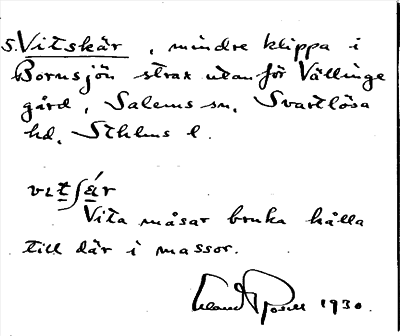 s. Vitskär, mindre klippa i
Bornsjön strax utanför Vällinge
gård, Salems sn, Svartlösa
hd, Sthlms l.
Vita måsar bruka hålla
till där i massor.
1930.